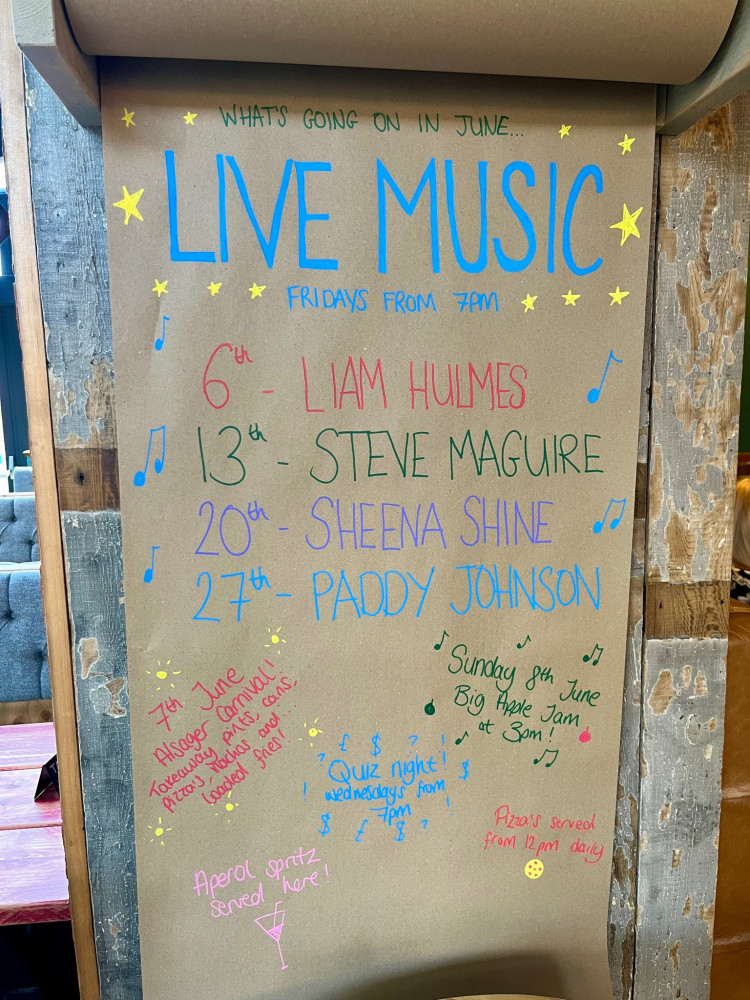 WHAT'S GOING ON IN JUNE...
LIVE MUSIC
FRIDAYS FROM 7PM
6th - LIAM HULMES
13th - STEVE MAGUIRE
20th - SHEENA SHINE
27th - PADDY JOHNSON
7th June
Alsager Carnival!
Takeaway pints, cans,
pizza's, nachos and
loaded fries!
Sunday 8th June
Big Apple Jam
at 3pm!
£ $ ? !
Quiz night!
wednesdays from
7pm
$ £ $ ?
Pizza's served
from 12pm daily
Aperol spritz
served here!